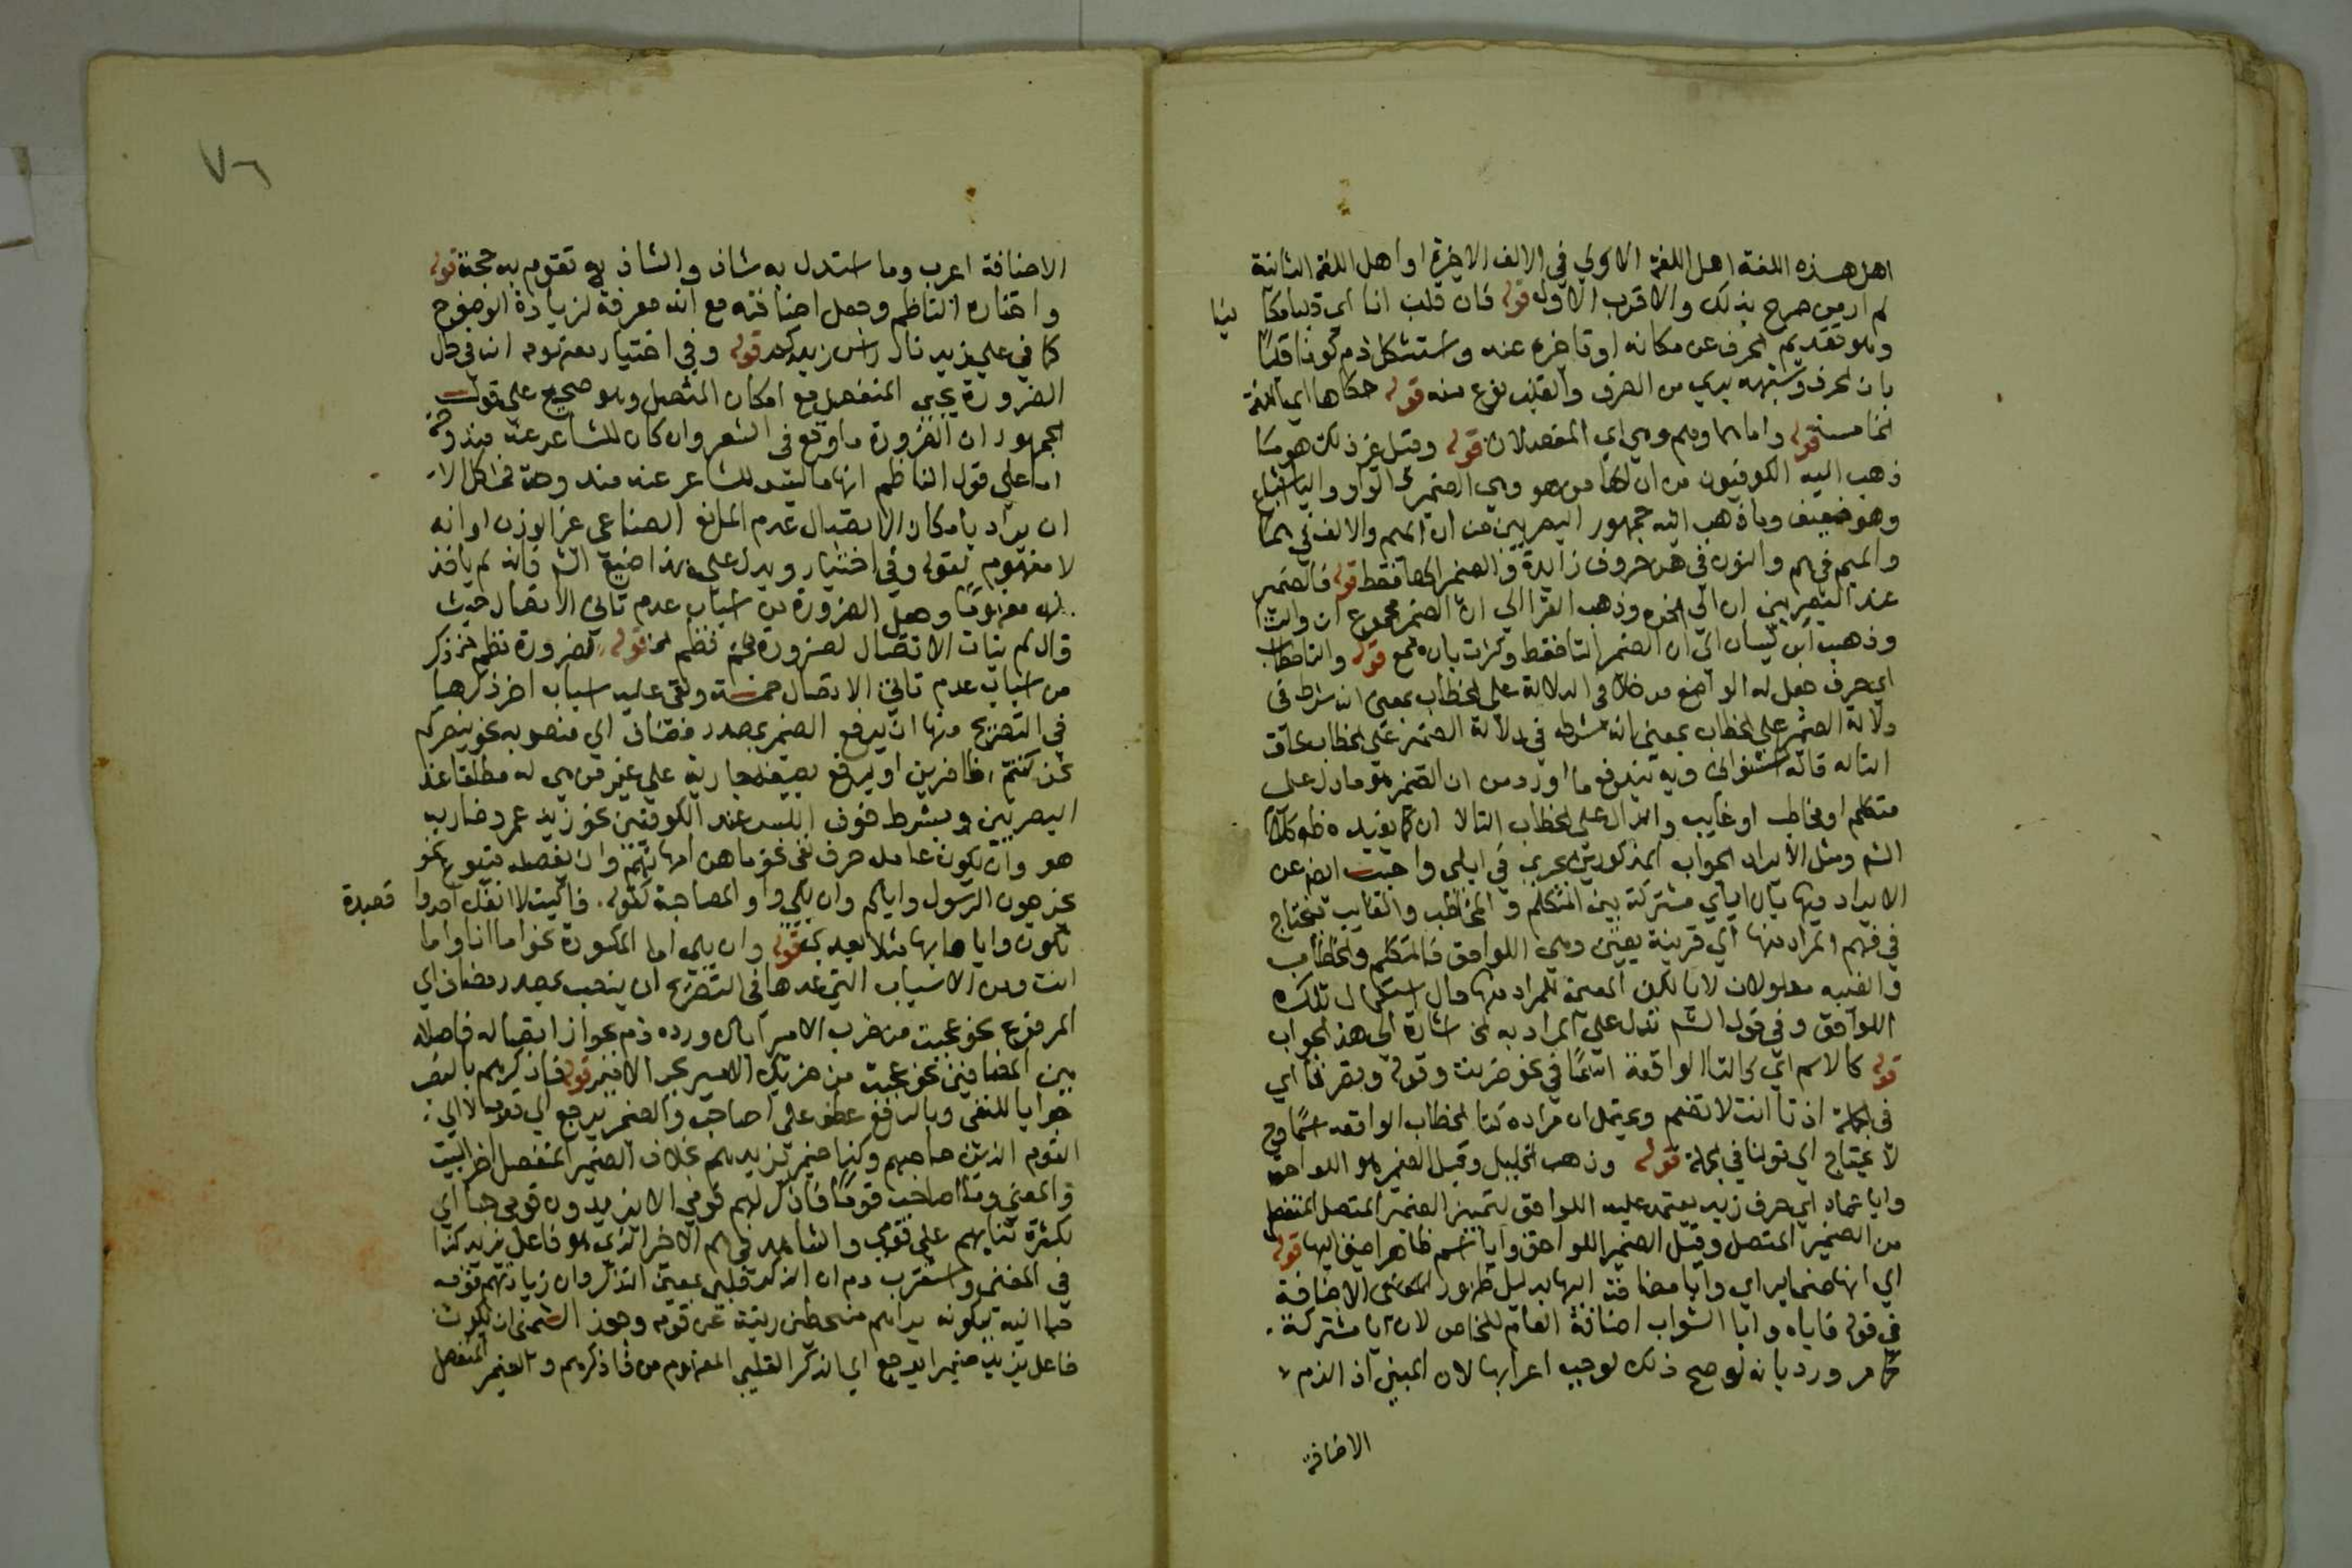 اهل هذه اللغة اهل اللغة الاولي في الالف الاخيرة او اهل اللغة الثانية
لم ار من صرح بذلك والاقرب الاول قوله فان قلت انا اي قلبا مكا نيا
وهو تقديم الحرف عن مكانه او تاخره عنه واستشكل دم كونه قلبا
بان الحرف وشبهه بري من الصرف والقلب نوع منه قوله حكاها اي اللغة
الخامسة قوله واما هما وهم وهي اي المفصد لان قوله وقيل غير ذلك هو ما
ذهب اليه الكوفيون من ان الها من هو وهي الضمير والواو واليا اشباع
وهو ضعيف وما ذهب اليه جمهور البصريين من ان الميم والالف في هما
والميم في هم والنون في هن حروف زايدة والضمير الها فقط قوله فالضمير
عند البصريين ان الي اخره وذهب الفرا الي ان الضمير مجموع ان والتا
وذهب ابن كيسان الي ان الضمير التا فقط وكثرت بان قوله والتا حرف خطاب
اي حرف جعل له الواضع مدخلا في الدلالة على الخطاب بمعنى انه شرط في
دلالة الضمير على الخطاب بمعنى انه شرط في دلالة الضمير على الخطاب لحاق
التا له قاله الشنواني وبه يندفع ما اورد من ان الضمير هو ما دل على
متكلم او مخاطب او غايب والدال على الخطاب التا لا ان كما يفيده ظاهر كلام
الشم ومثل الايراد الجواب المذكورين يجري في اياي واجيب ايضا عن
الايراد فيها بان اياي مشتركة بين المتكلم والمخاطب والغايب فيحتاج
في فهم المراد منها الي قرينة تعين وهي اللواحق فالمتكلم والخطاب
والغيبة مدلولان لايا لكن المعينة للمراد منها حال استعمال تلك
اللواحق وفي قول الشم تدل على المراد به الخ اشارة الى هذا الجواب
قوله كالاسم اي كالتا الواقعة اسما في نحو ضربت وقوله وتصرفا اي
في الجملة اذ تا انت لا تضم ويحتمل ان مراده كتا الخطاب الواقعة اسما وح
لا يحتاج الي قولنا في الجملة قوله وذهب الخليل وقيل الضمير هو اللواحق
وايا عماد اي حرف زيد يعتمد عليه اللواحق لتمييز الضمير المتصل المنفصل
من الضمير المتصل وقيل الضمير اللواحق وايا اسم ظاهر اضيف اليها قوله
اي انها ضماير اي وايا مضافة اليها بدليل ظهور الاضافة
في قوله فاياه وايا الشواب اضافة العام للخاص لان ايا مشتركة
كما مر ورد بانه لو صح ذلك لوجب اعرابها لان المبني اذا لزم
الاضافة
٧٦
الاضافة اعرب وما استدل به شاذ والشاذ لا تقوم به حجة قوله
واختاره الناظم وجعل اضافته مع انه معرفة لزيادة الوضوح
كما في على زيد نار راس زيد قوله وفي اختيار مفهومه ان في حال
الضرورة يجي المنفصل مع امكان المتصل وهو صحيح على قول
الجمهور ان الضرورة ما وقع في الشعر وان كان للشاعر عنه مندوحة
اما على قول الناظم انها ما ليس للشاعر عنه مندوحة فمشكل الا
ان يراد بامكان الاتصال عدم المانع الصناعي غير الوزن او انه
لا مفهوم لقوله وفي اختيار ويدل على هذا صنيع الشم فانه لم ياخذ
له مفهوما وجعل الضرورة من اسباب عدم تاتي الاتصال حيث
قال لم يتات الاتصال لضرورة نظم الخ قوله لضرورة نظم الخ ذكر
من اسباب عدم تاتي الاتصال خمسة وبقي عليه اسباب اخر ذكرها
في التصريح منها ان يرفع الضمير بمصدر مضاف الي منصوبه نحو بنصركم
نحن كنتم ظافرين او يرفع بصفة جارية على غير من هي له مطلقا عند
البصريين وبشرط خوف اللبس عند الكوفيين نحو زيد عمرو ضاربه
هو وان يكون عامله حرف نفي نحو ما هن امهاتهم وان يفصله متبوع نحو
يخرجون الرسول واياكم وان يلي واو المصاحبة كقوله فاليت لا انفك احدو قصيدة
تكون واياها بها مثلا بعدي قوله وان يلي اما المكسورة نحو اما انا واما
انت ومن الاسباب التي عدها في التصريح ان ينصب بمصدر مضاف اي
المرفوع نحو عجبت من ضرب الامير اياك ورده دم بجواز اتصاله فاصلا
بين المضافين نحو عجبت من ضربك الامير بجر الامير قوله فاذكرهم بالنصب
جوابا للنفي وبالرفع عطف على اصاحب والضمير يرجع الي قومه لا الي
القوم الذين صاحبهم وكذا ضمير يزيدهم بخلاف الضمير المنفصل اخر البيت
والمعنى وما اصاحب قوما فاذكر لهم قومي الا يزيدون قومي حبا الي
بكثرة ثنايهم على قومي والشاهد في هم الاخر الذي هو فاعل يزيد كذا
في المغني واستقرب دم ان الذكر قلبي بمعنى التذكر وان زيادتهم قومه
حبا اليه بكونه يراهم منحطين رتبة عن قومه وجوز الشمني ان يكون
فاعل يزيد ضميرا يرجع الي الذكر القلبي المفهوم من فاذكرهم والضمير المنفصل